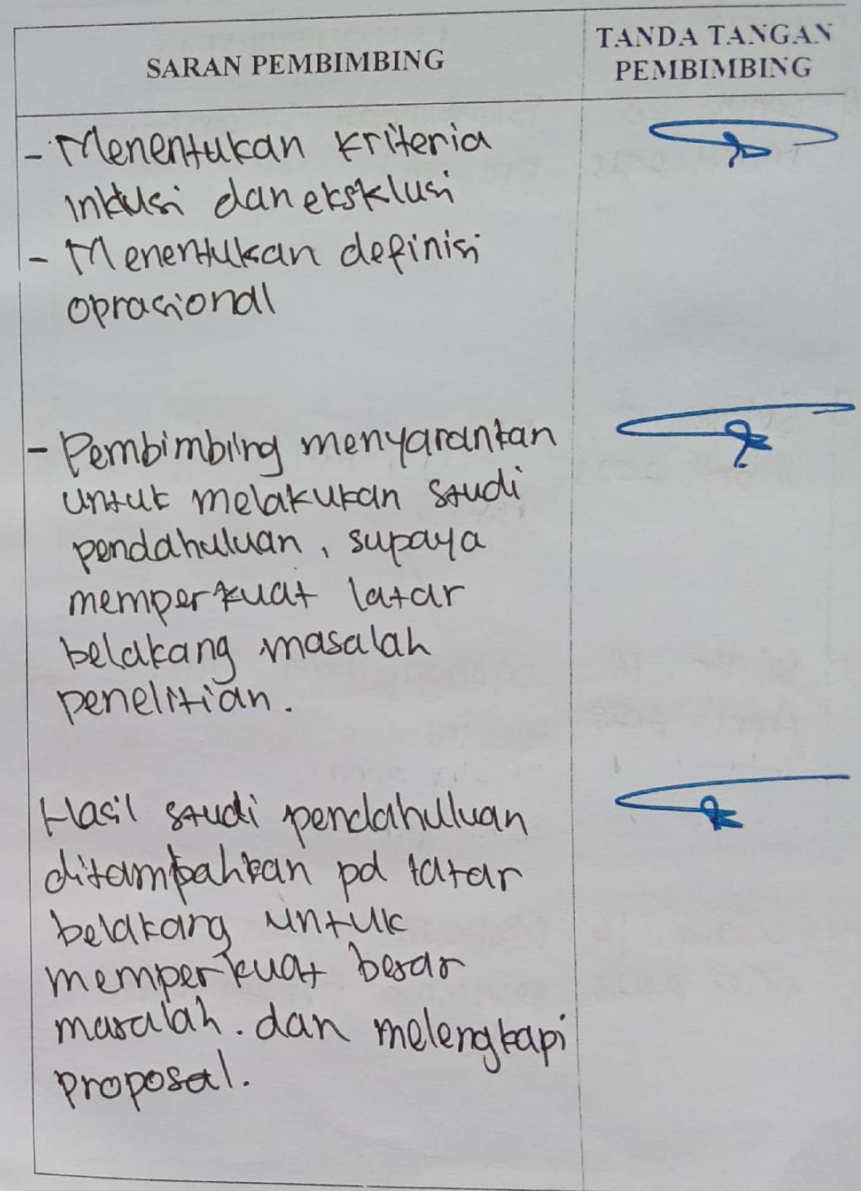 SARAN PEMBIMBING
TANDA TANGAN
PEMBIMBING
- Menentukan kriteria
inklusi dan eksklusi
- Menentukan definisi
oprasional
- Pembimbing menyarankan
untuk melakukan studi
pendahuluan, supaya
memperkuat latar
belakang masalah
penelitian.
Hasil studi pendahuluan
ditambahkan pd latar
belakang untuk
memperkuat besar
masalah. dan melengkapi
proposal.